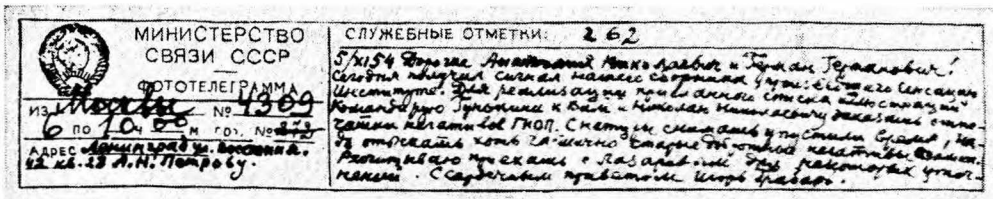 МИНИСТЕРСТВО
СВЯЗИ СССР
ФОТОТЕЛЕГРАММА
ИЗ Москвы № 4309
6 ПО 10 Ч 00 М ГОР. №
АДРЕС Ленинград ул.
42 кв. 23 А.Н. Петрову.
СЛУЖЕБНЫЕ ОТМЕТКИ: 262
5/XI 54 Дорогие Анатолий Николаевич и Герман Германович!
Сегодня получил сигнал нашего сборника
Институте. Для реализации присланного списка иллюстраций
Командирую к Вам и Николаю Николаевичу заказать отпе-
чатки негативов ГИОП. снимать упустили время, на-
до отыскать хоть старые негативы
Рассчитываю приехать с Лазаревым для некоторых уточ-
нений. С сердечным приветом Игорь Грабарь.